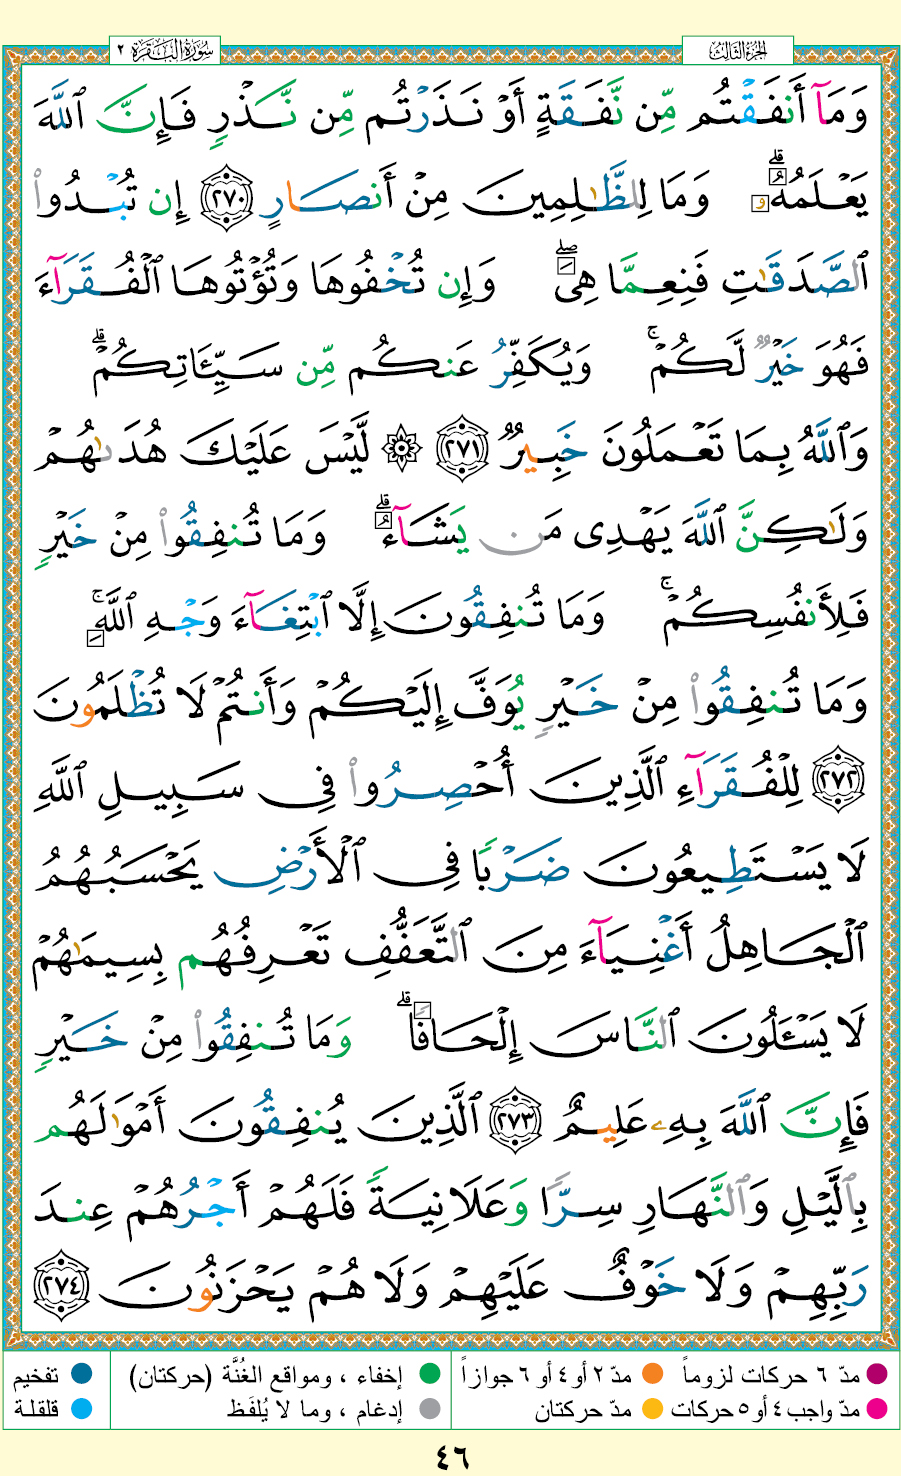 الجزء الثالث
سورة البقرة ٢
وَمَآ أَنفَقْتُم مِّن نَّفَقَةٍ أَوْ نَذَرْتُم مِّن نَّذْرٍ فَإِنَّ ٱللَّهَ
يَعْلَمُهُۥ ۗ وَمَا لِلظَّـٰلِمِينَ مِنْ أَنصَارٍ ﴿٢٧٠﴾ إِن تُبْدُوا۟
ٱلصَّدَقَـٰتِ فَنِعِمَّا هِىَ ۖ وَإِن تُخْفُوهَا وَتُؤْتُوهَا ٱلْفُقَرَآءَ
فَهُوَ خَيْرٌ لَّكُمْ ۚ وَيُكَفِّرُ عَنكُم مِّن سَيِّـَٔاتِكُمْ ۗ
وَٱللَّهُ بِمَا تَعْمَلُونَ خَبِيرٌ ﴿٢٧١﴾ ۞ لَّيْسَ عَلَيْكَ هُدَىٰهُمْ
وَلَـٰكِنَّ ٱللَّهَ يَهْدِى مَن يَشَآءُ ۗ وَمَا تُنفِقُوا۟ مِنْ خَيْرٍ
فَلِأَنفُسِكُمْ ۚ وَمَا تُنفِقُونَ إِلَّا ٱبْتِغَآءَ وَجْهِ ٱللَّهِ ۚ
وَمَا تُنفِقُوا۟ مِنْ خَيْرٍ يُوَفَّ إِلَيْكُمْ وَأَنتُمْ لَا تُظْلَمُونَ
﴿٢٧٢﴾ لِلْفُقَرَآءِ ٱلَّذِينَ أُحْصِرُوا۟ فِى سَبِيلِ ٱللَّهِ
لَا يَسْتَطِيعُونَ ضَرْبًا فِى ٱلْأَرْضِ يَحْسَبُهُمُ
ٱلْجَاهِلُ أَغْنِيَآءَ مِنَ ٱلتَّعَفُّفِ تَعْرِفُهُم بِسِيمَـٰهُمْ
لَا يَسْـَٔلُونَ ٱلنَّاسَ إِلْحَافًا ۗ وَمَا تُنفِقُوا۟ مِنْ خَيْرٍ
فَإِنَّ ٱللَّهَ بِهِۦ عَلِيمٌ ﴿٢٧٣﴾ ٱلَّذِينَ يُنفِقُونَ أَمْوَٰلَهُم
بِٱلَّيْلِ وَٱلنَّهَارِ سِرًّا وَعَلَانِيَةً فَلَهُمْ أَجْرُهُمْ عِندَ
رَبِّهِمْ وَلَا خَوْفٌ عَلَيْهِمْ وَلَا هُمْ يَحْزَنُونَ ﴿٢٧٤﴾
مدّ ٦ حركات لزوماً مدّ ٢ أو ٤ أو ٦ جوازاً
مدّ واجب ٤ أو ٥ حركات مدّ حركتان
إخفاء ، ومواقع الغُنَّة (حركتان)
إدغام ، وما لا يُلفَظ
تفخيم
قلقلة
٤٦